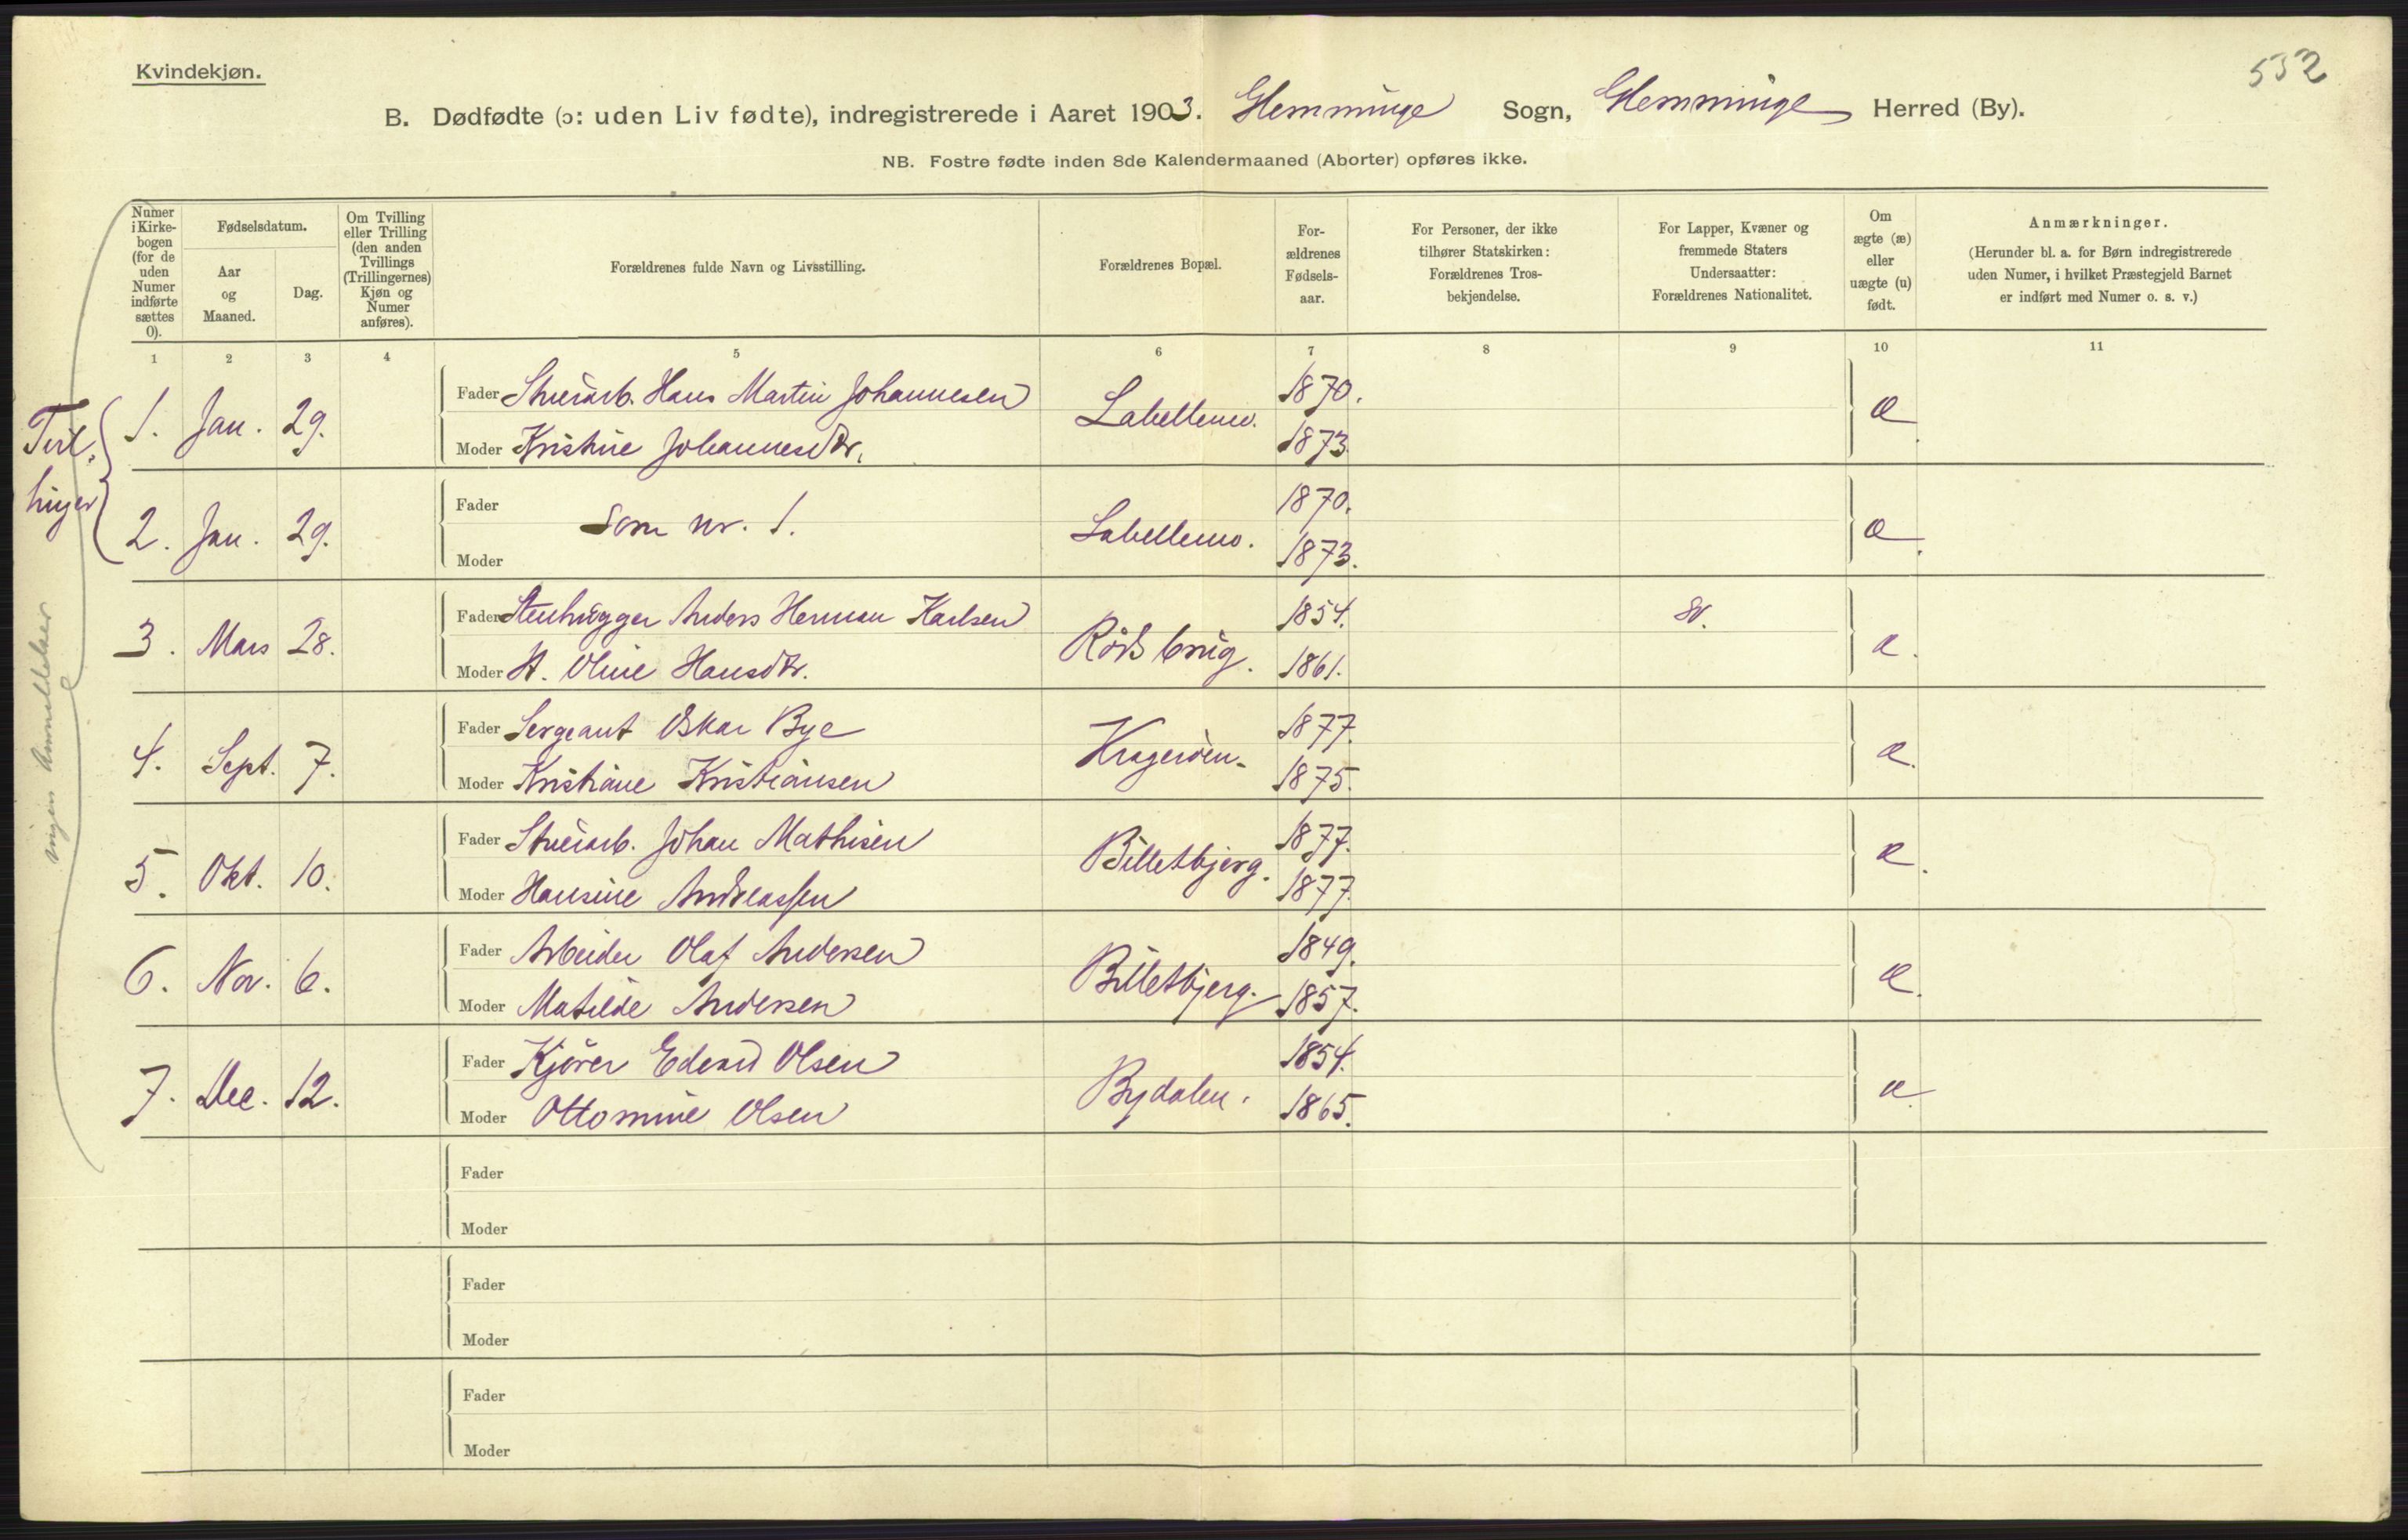 532
Kvindekjøn.
B. Dødfødte (ɔ: uden Liv fødte), indregistrerede i Aaret 1903. Glemminge Sogn, Glemminge Herred (By).
NB. Fostre fødte inden 8de Kalendermaaned (Aborter) opføres ikke.
Numer i Kirkebogen (for de uden Numer indførte sættes 0).
Fødselsdatum.
Aar og Maaned.
Dag.
Om Tvilling eller Trilling (den anden Tvillings (Trillingernes) Kjøn og Numer anføres).
Forældrenes fulde Navn og Livsstilling.
Forældrenes Bopæl.
Forældrenes Fødselsaar.
For Personer, der ikke tilhører Statskirken: Forældrenes Trosbekjendelse.
For Lapper, Kvæner og fremmede Staters Undersaatter: Forældrenes Nationalitet.
Om ægte (æ) eller uægte (u) født.
Anmærkninger.
(Herunder bl. a. for Børn indregistrerede uden Numer, i hvilket Præstegjeld Barnet er indført med Numer o. s. v.)
1 2 3 4 5 6 7 8 9 10 11
Tvillinger
ingen Anmeldelser
1. Jan. 29. Fader Hans Martin Johannesen 1870. æ
Moder Kristine Johannesdtr. Labellemo. 1873.
2. Jan. 29. Fader som nr. 1. Labellemo. 1870. æ.
Moder 1873.
3. Mars 28. Fader Stenhugger Anders Herman Karlsen 1854. sv. æ.
Moder A. Oline Hansdtr. Røds brug. 1861.
4. Sept. 7. Fader Sergeant Oskar Bye Kragerøen. 1877. æ.
Moder Kristiane Kristiansen 1875.
5. Okt. 10. Fader Johan Mathisen Billetbjerg. 1877. æ.
Moder Hansine Andreassen 1877.
6. Nov. 6. Fader Arbeider Olaf Andersen Billetbjerg. 1849. æ.
Moder Matilde Andersen 1857.
7. Dec. 12. Fader Kjører Edvard Olsen Bydalen. 1854. æ.
Moder Ottomine Olsen 1865.
Fader
Moder
Fader
Moder
Fader
Moder